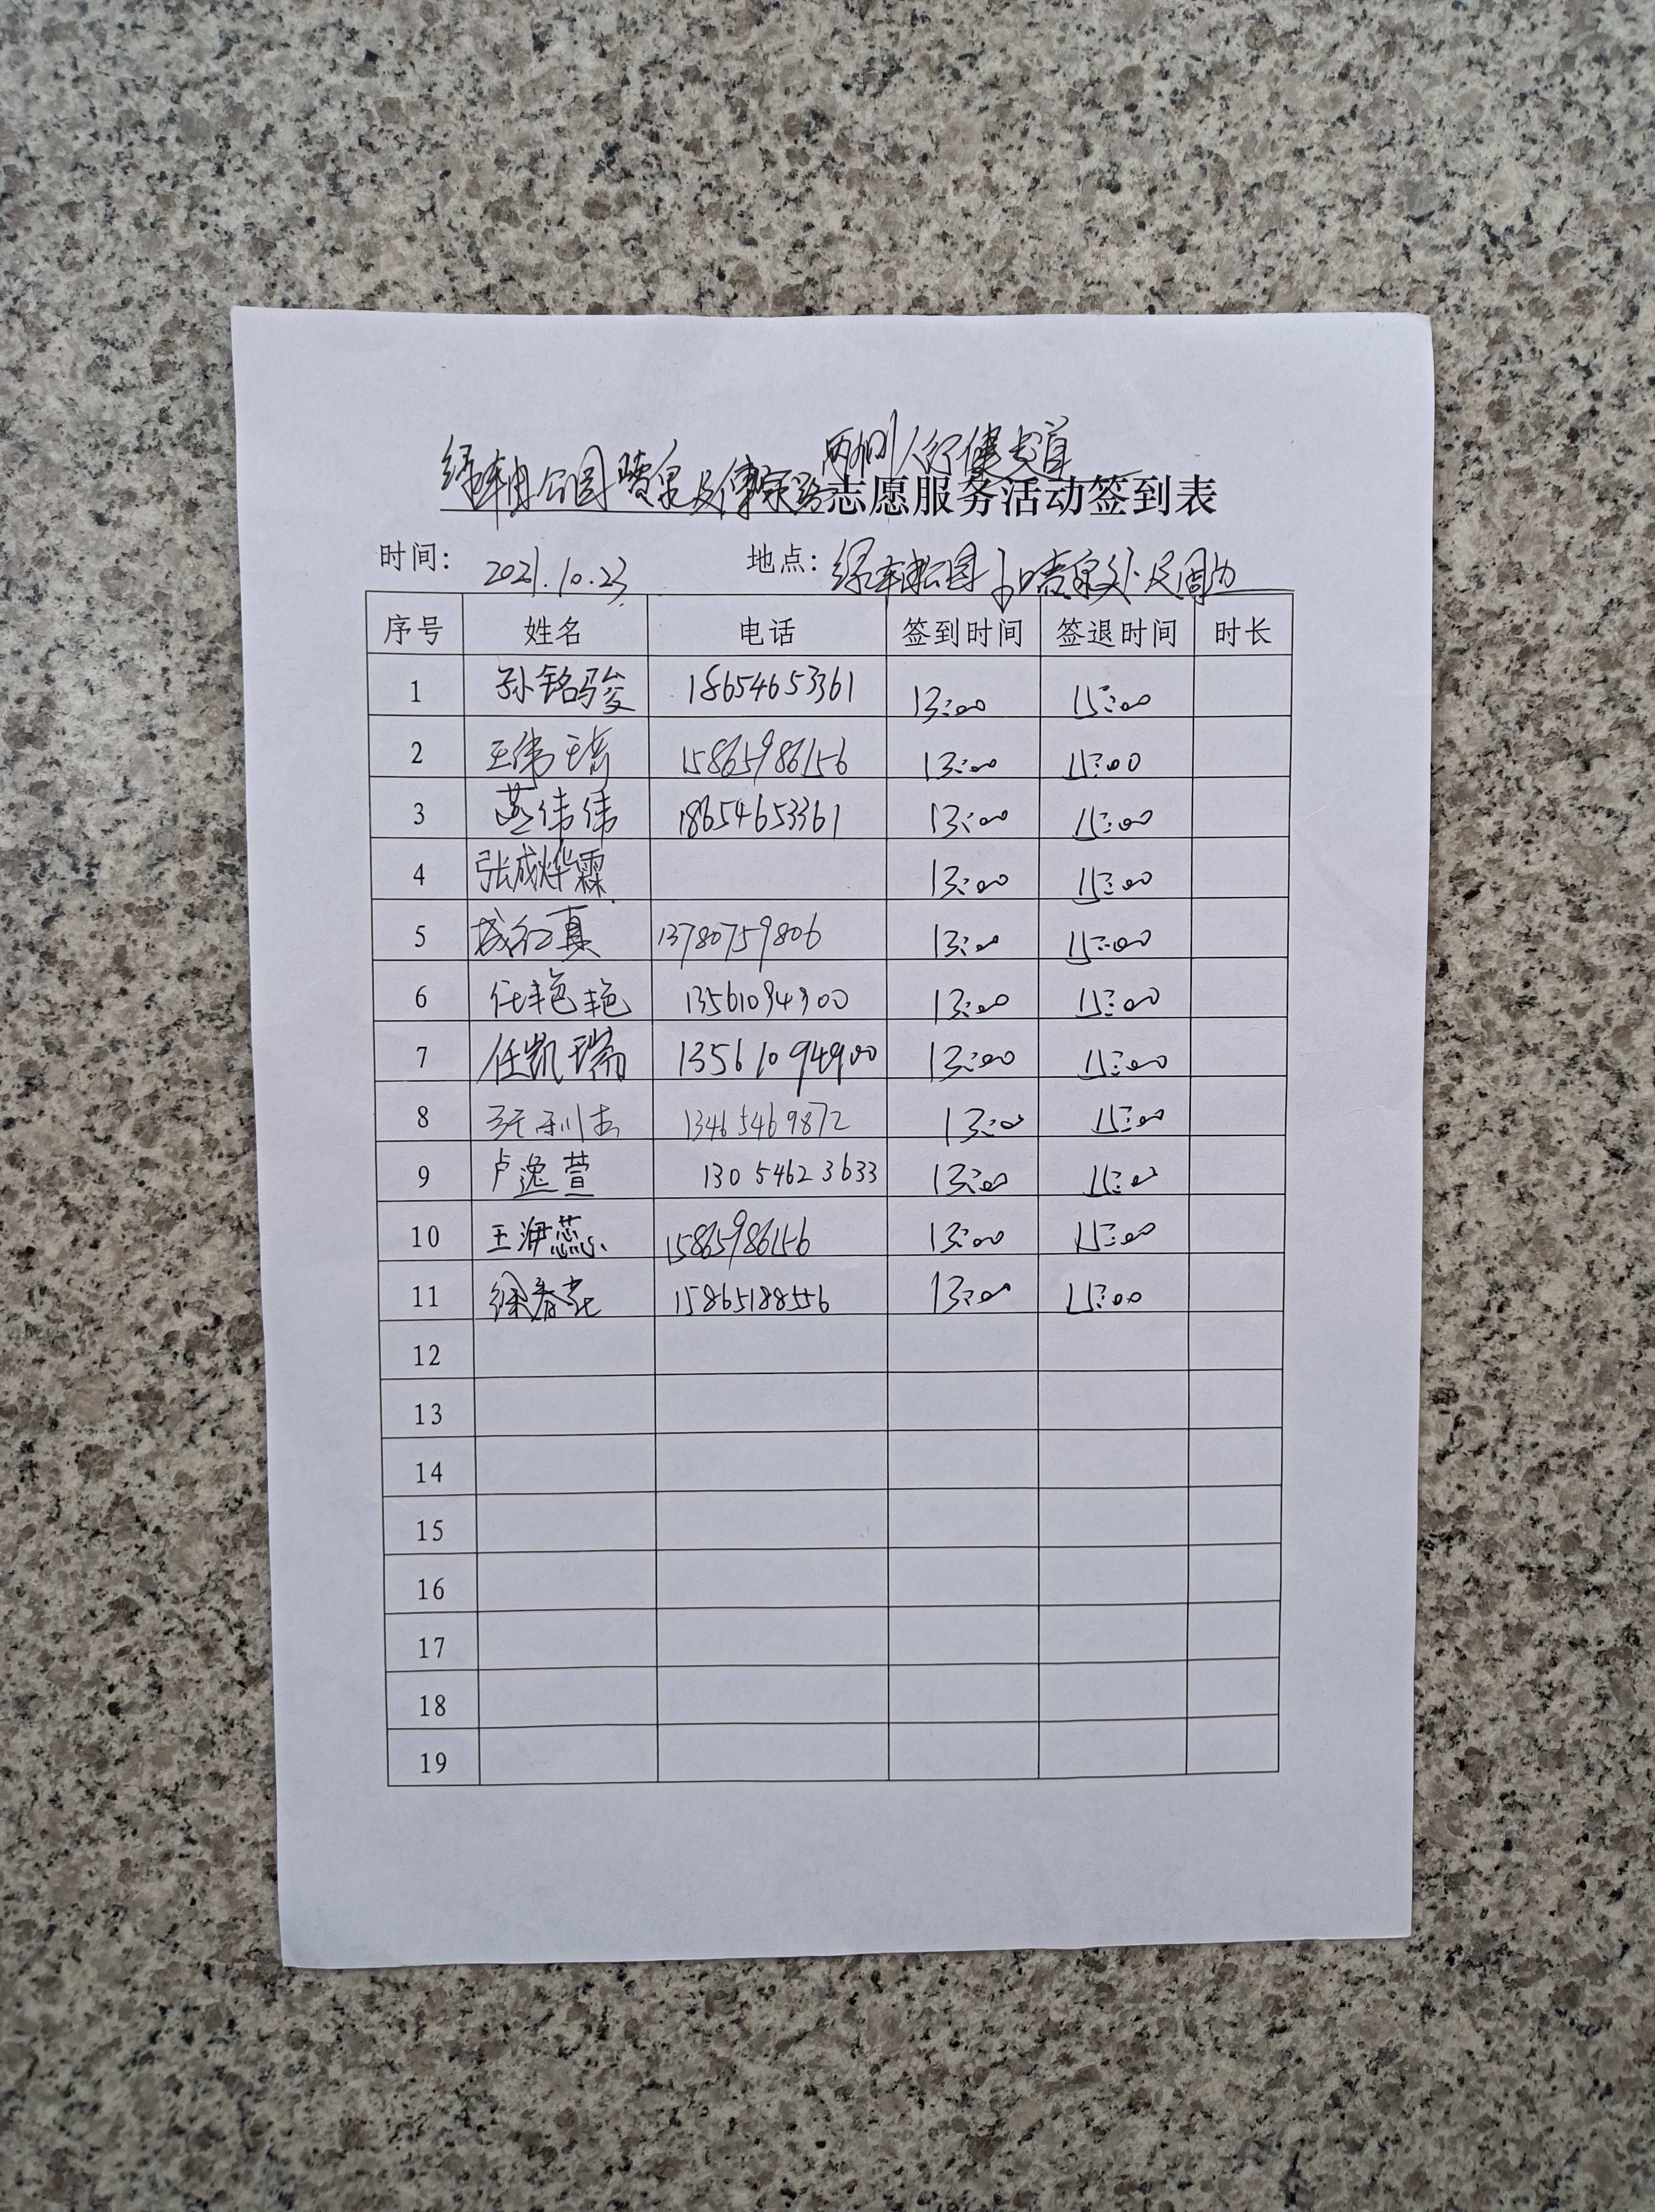 两侧人行健走道
公园喷泉及 志愿服务活动签到表
时间: 2021.10.23 地点: 公园 喷泉处及周边
序号 姓名 电话 签到时间 签退时间 时长
1 孙铭骏 18654653361 13:00 15:00
2 王伟琦 15865986156 13:00 15:00
3 燕伟伟 18654653361 13:00 15:00
4 张成烨霖 13:00 15:00
5 成红真 13780759806 13:00 15:00
6 任艳艳 13561094900 13:00 15:00
7 任凯瑞 13561094900 13:00 15:00
8 13465469872 13:00 15:00
9 卢逸萱 13054623633 13:00 15:00
10 王洢蕊 15865986156 13:00 15:00
11 徐春花 15865188556 13:00 15:00
12
13
14
15
16
17
18
19